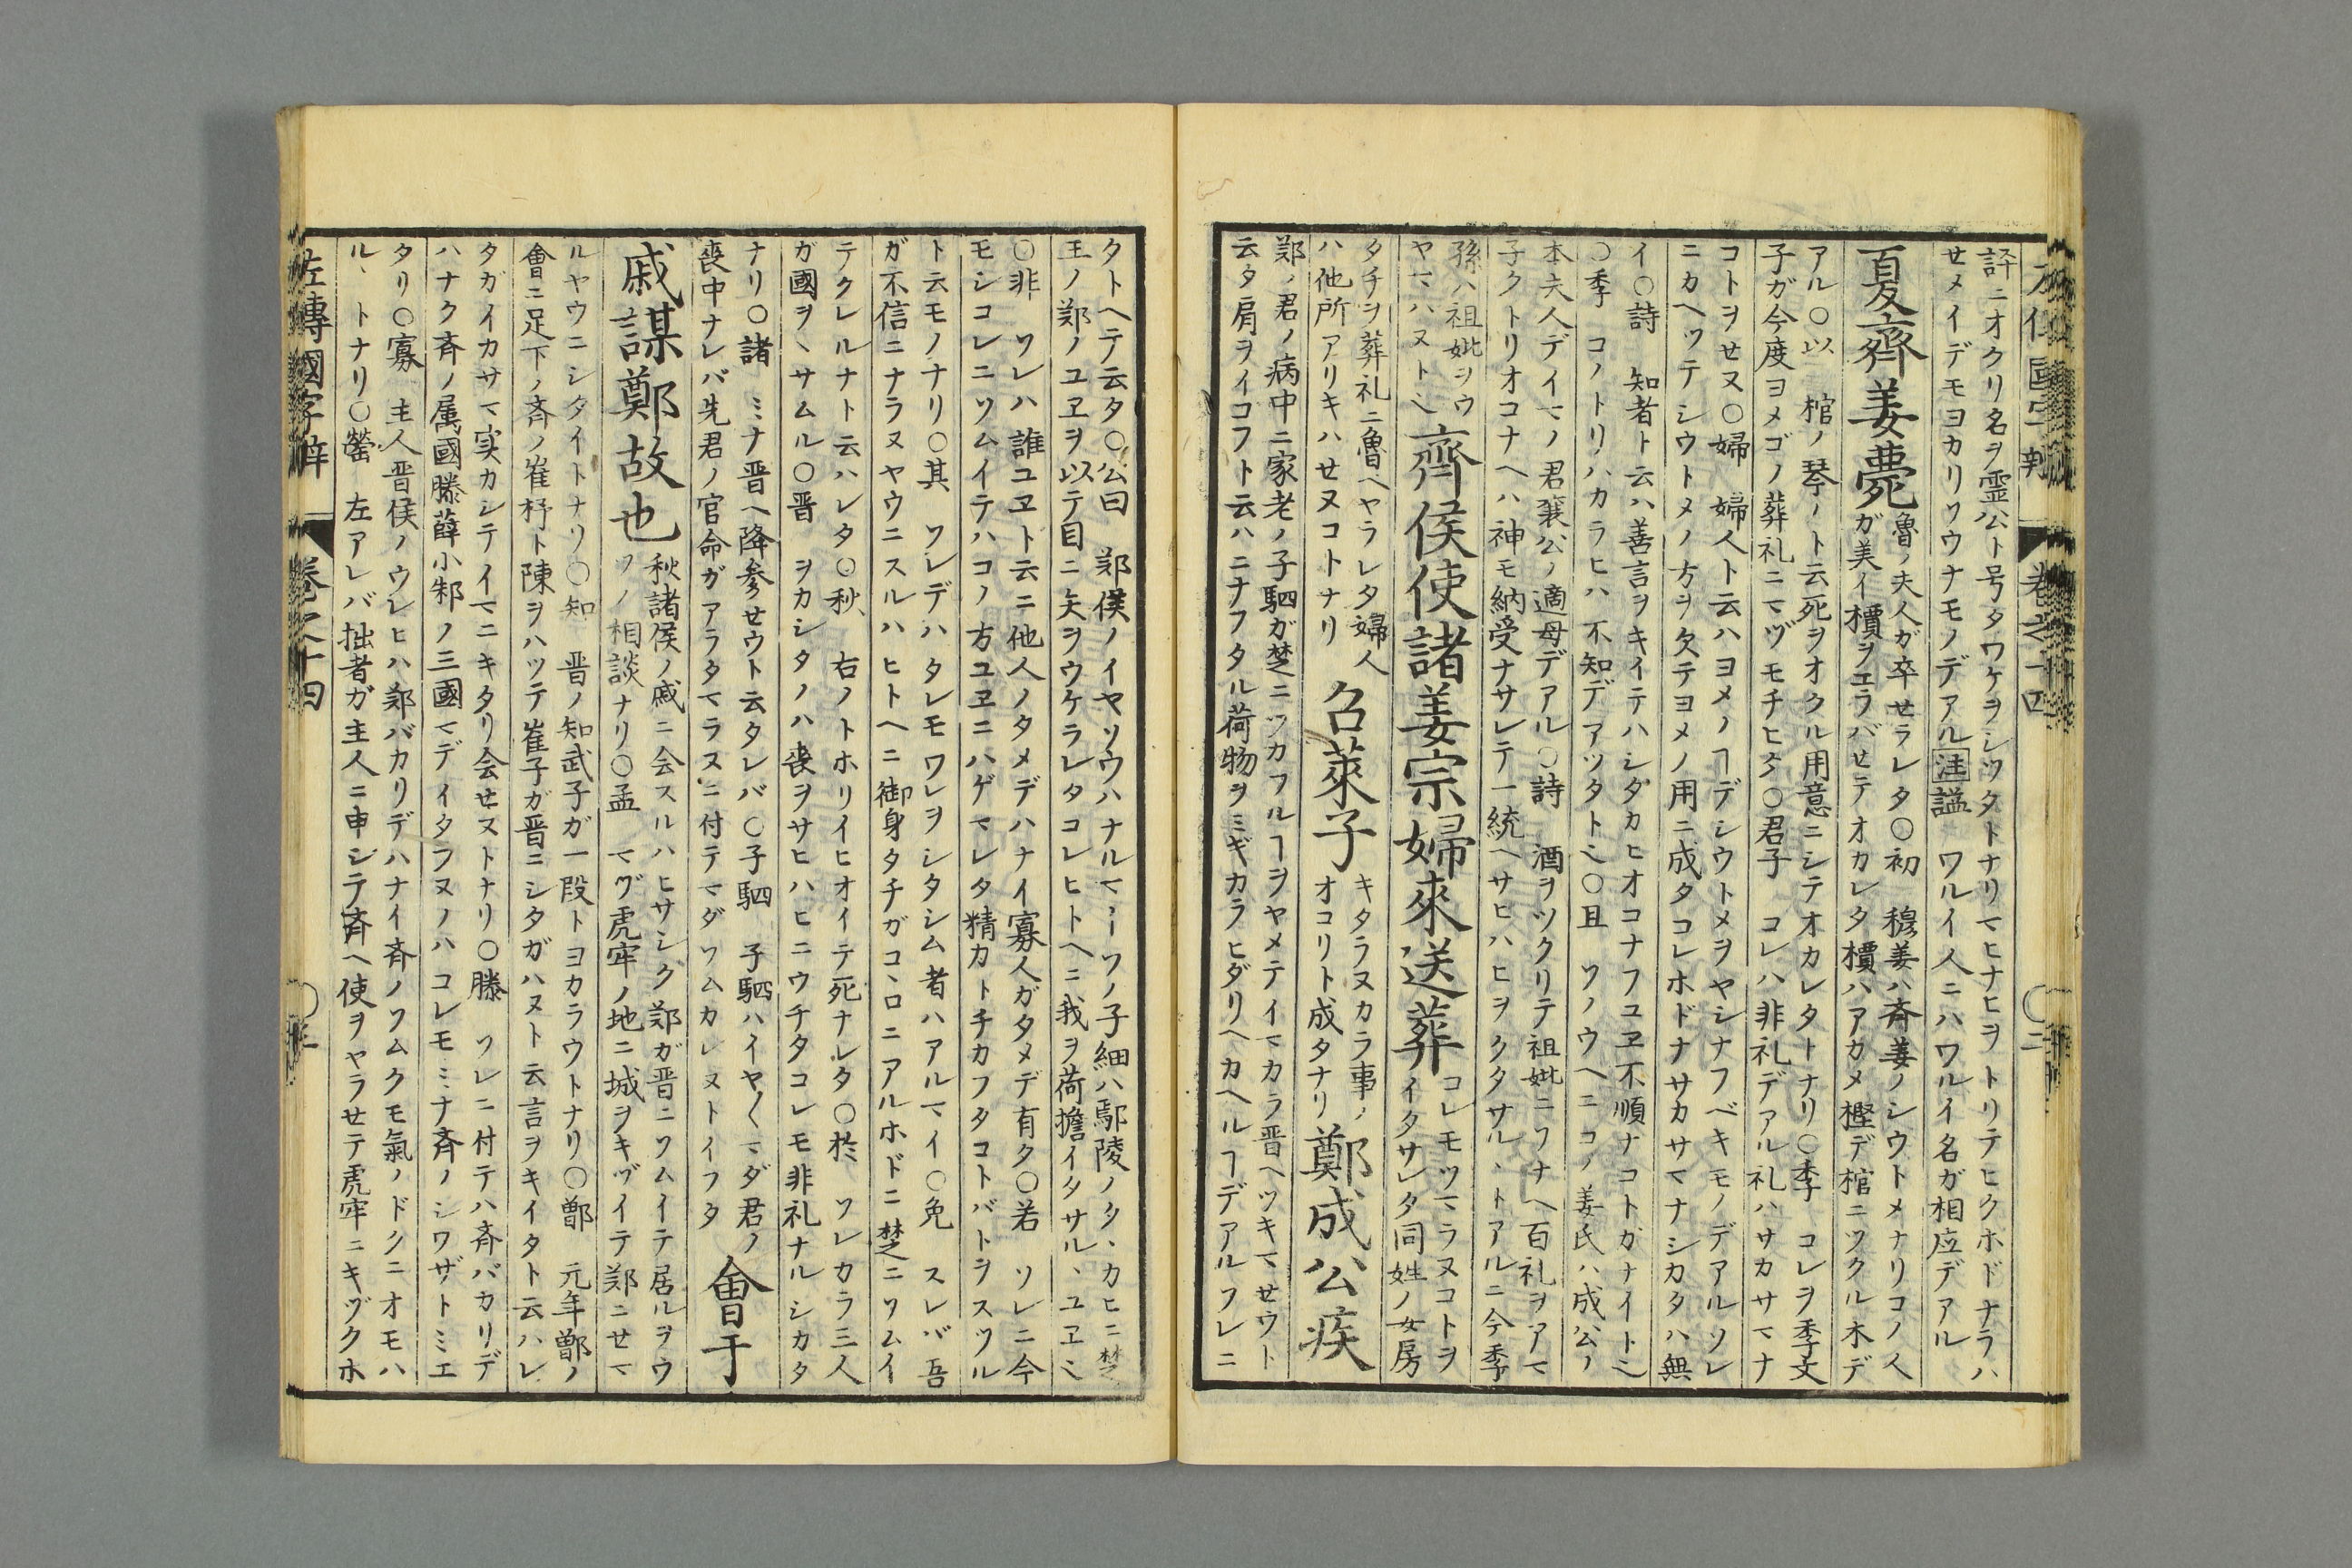 左傳國字觧 巻之十四 〇二
諡ニオクリ名ヲ霊公ト号タワケヲシツタトナリマヒナヒヲトリテヒクホドナラハ
せメイデモヨカリソウナモノデアル 注 謚 ワルイ人ニハワルイ名ガ相应デアル
夏齊姜薨
魯ノ夫人ガ卒せラレタ〇初 穆姜ハ斉姜ノシウトメナリコノ人
ガ美イ檟ヲエラバせテオカレタ檟ハアカメ樫デ棺ニツクル木デ
アル〇以 棺ノ琴ノト云死ヲオクル用意ニシテオカレタトナリ〇季 コレヲ季文
子ガ今度ヨメゴノ葬礼ニマヅモチヒタ〇君子 コレハ非礼デアル礼ハサカサマナ
コトヲせヌ〇婦 婦人ト云ハヨメノヿデシウトメヲヤシナフベキモノデアルソレ
ニカヘツテシウトメノ方ヲ欠テヨメノ用ニ成タコレホドナサカサマナシカタハ無
イ〇詩 知者ト云ハ善言ヲキイテハシタカヒオコナフユヱ不順ナコトガナイト也
〇季 コノトリハカラヒハ不知デアツタト也〇且 ソノウヘニコノ姜氏ハ成公ノ
本夫人デイマノ君襄公ノ適母デアル〇詩 酒ヲツクリテ祖妣ニソナヘ百礼ヲアマ
子クトリオコナヘハ神モ納受ナサレテ一統ヘサヒハヒヲクタサル、トアルニ今季
孫ハ祖妣ヲウ
ヤマハヌト也
齊侯使諸姜宗婦來送葬
コレモツマラヌコトヲ
イタサレタ同姓ノ女房
タチヲ葬礼ニ魯ヘヤラレタ婦人
ハ他所アリキハせヌコトナリ
召萊子
キタラヌカラ事ノ
オコリト成タナリ
鄭成公疾
郑ノ君ノ病中ニ家老ノ子駟ガ楚ニツカフルヿヲヤメテイマカラ晋ヘツキマせウト
云タ肩ヲイコフト云ハニナフタル荷物ヲミギカラヒダリヘカヘルヿデアルソレニ
タトヘテ云タ〇公曰 郑侯ノイヤソウハナルマイソノ子細ハ鄢陵ノタヽカヒニ楚
王ノ郑ノユヱヲ以テ目ニ矢ヲウケラレタコレヒトヘニ我ヲ荷擔イタサル、ユヱ也
〇非 ソレハ誰ユヱト云ニ他人ノタメデハナイ寡人ガタメデ有タ〇若 ソレニ今
モシコレニソムイテハコノ方ユヱニハゲマレタ精力トチカフタコトバトヲスツル
ト云モノナリ〇其 ソレデハタレモワレヲシタシム者ハアルマイ〇免 スレバ吾
ガ不信ニナラヌヤウニスルハヒトヘニ御身タチガコヽロニアルホドニ楚ニソムイ
テクレルナト云ハレタ〇秋、 右ノトホリイヒオイテ死ナレタ〇於 ソレカラ三人
ガ國ヲヽサムル〇晋 ヲカシタノハ喪ヲサヒハヒニウチタコレモ非礼ナルシカタ
ナリ〇諸 ミナ晋ヘ降参せウト云タレバ〇子駟 子駟ハイヤ〱マダ君ノ
喪中ナレバ先君ノ官命ガアラタマラヌニ付テマダソムカレヌトイフタ
會于
戚謀鄭故也
秋諸侯ノ戚ニ会スルハヒサシク郑ガ晋ニソムイテ居ルヲウ
ソノ相談ナリ〇孟 マヅ虎牢ノ地ニ城ヲキヅイテ郑ニせマ
ルヤウニシタイトナリ〇知 晋ノ知武子ガ一段トヨカラウトナリ〇鄫 元年鄫ノ
會ニ足下ノ斉ノ崔杼ト陳ヲハツテ崔子ガ晋ニシタガハヌト云言ヲキイタト云ハレ
タガイカサマ実カシテイマニキタリ会せヌトナリ〇滕 ソレニ付テハ斉バカリデ
ハナク斉ノ属國滕薛小邾ノ三國マデイタフヌノハコレモミナ斉ノシワザトミエ
タリ〇寡 主人晋侯ノウレヒハ郑バカリデハナイ斉ノソムクモ氣ノドクニオモハ
ル、トナリ〇罃 左アレバ拙者ガ主人ニ申シテ斉ヘ使ヲヤラせテ虎牢ニキヅクホ
左傳國字觧 巻之十四 〇三